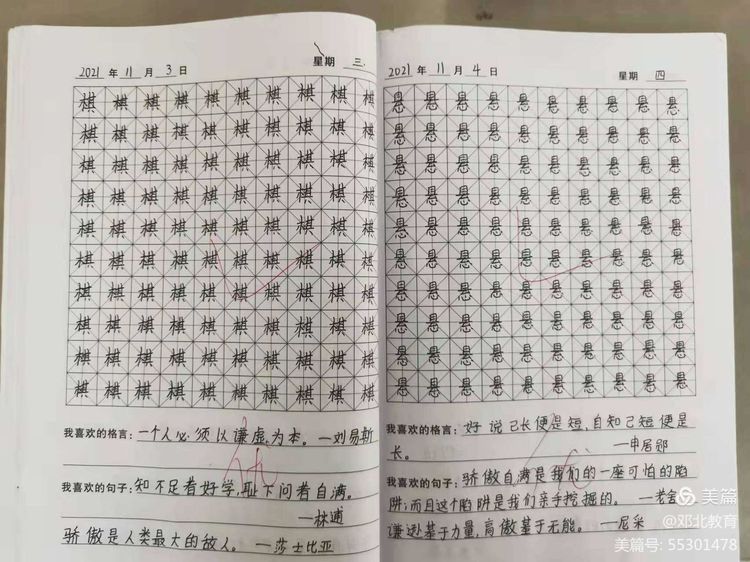 2021 年 11 月 3 日 星期 三
棋棋棋棋棋棋棋棋棋棋
棋棋棋棋棋棋棋棋棋棋
棋棋棋棋棋棋棋棋棋棋
棋棋棋棋棋棋棋棋棋棋
棋棋棋棋棋棋棋棋棋棋
棋棋棋棋棋棋棋棋棋棋
棋棋棋棋棋棋棋棋棋棋
棋棋棋棋棋棋棋棋棋棋
棋棋棋棋棋棋棋棋棋棋
棋棋棋棋棋棋棋棋棋棋
我喜欢的格言：一个人必须以谦虚为本。—刘易斯
我喜欢的句子：知不足者好学,耻下问者自满。
—林逋
骄傲是人类最大的敌人。—莎士比亚
2021 年 11 月 4 日 星期 四
悬悬悬悬悬悬悬悬悬悬
悬悬悬悬悬悬悬悬悬悬
悬悬悬悬悬悬悬悬悬悬
悬悬悬悬悬悬悬悬悬悬
悬悬悬悬悬悬悬悬悬悬
悬悬悬悬悬悬悬悬悬悬
悬悬悬悬悬悬悬悬悬悬
悬悬悬悬悬悬悬悬悬悬
悬悬悬悬悬悬悬悬悬悬
悬悬悬悬悬悬悬悬悬悬
我喜欢的格言：好说己长便是短,自知己短便是
长。 —申居郧
我喜欢的句子：骄傲自满是我们的一座可怕的陷
阱;而且这个陷阱是我们亲手挖掘的。—老舍
谦逊基于力量,高傲基于无能。—尼采
美篇
@邓北教育
美篇号: 55301478